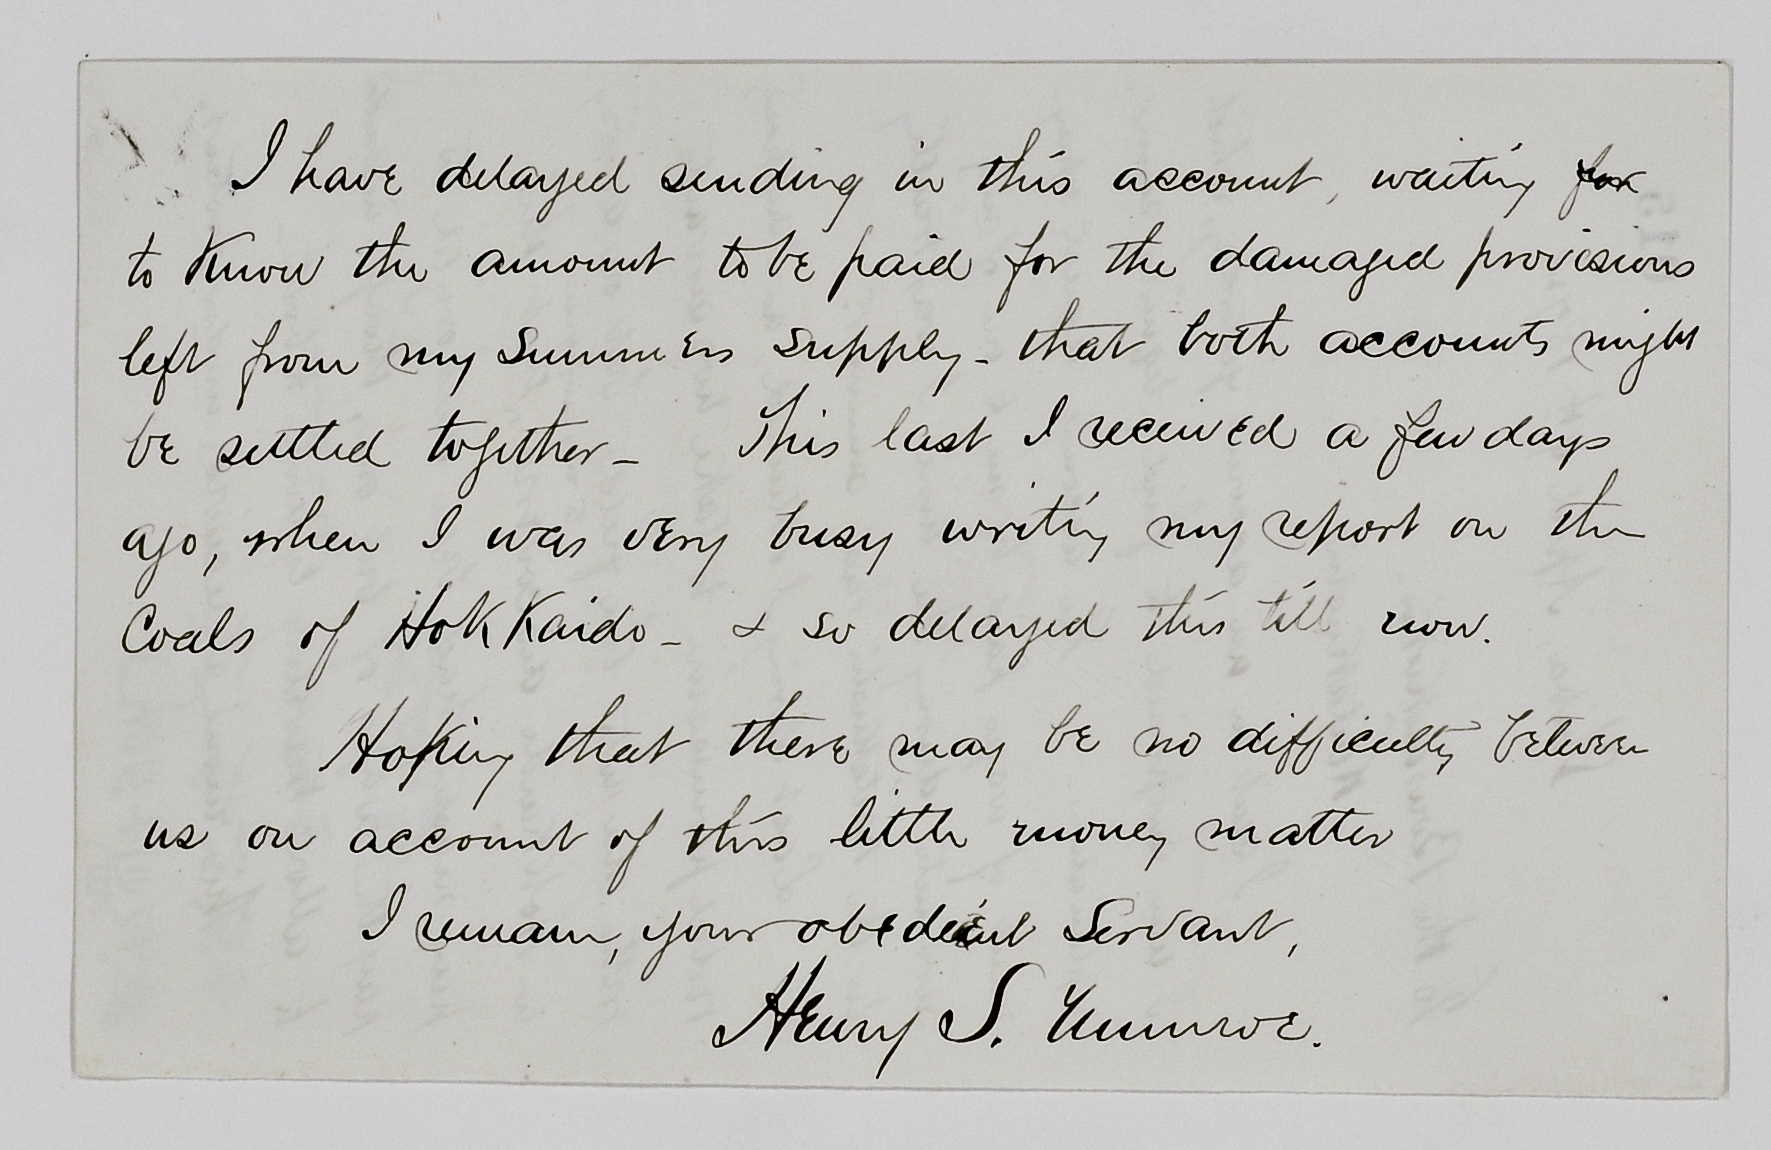 I have delayed sending in this account, waiting for
to know the amount to be paid for the damaged provisions
left from my Summers supply - that both accounts might
be settled together - This last I received a few days
ago, when I was very busy writing my report on the
Coals of Hokkaido - & so delayed this till now.
Hoping that there may be no difficulty between
us on account of this little money matter
I remain, your obedient Servant,
Henry S. Munroe.